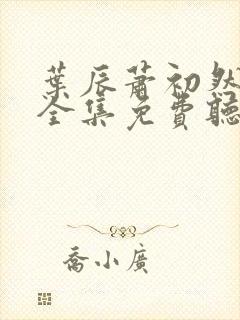 葉辰蕭初然
全集免費聽
喬小廣